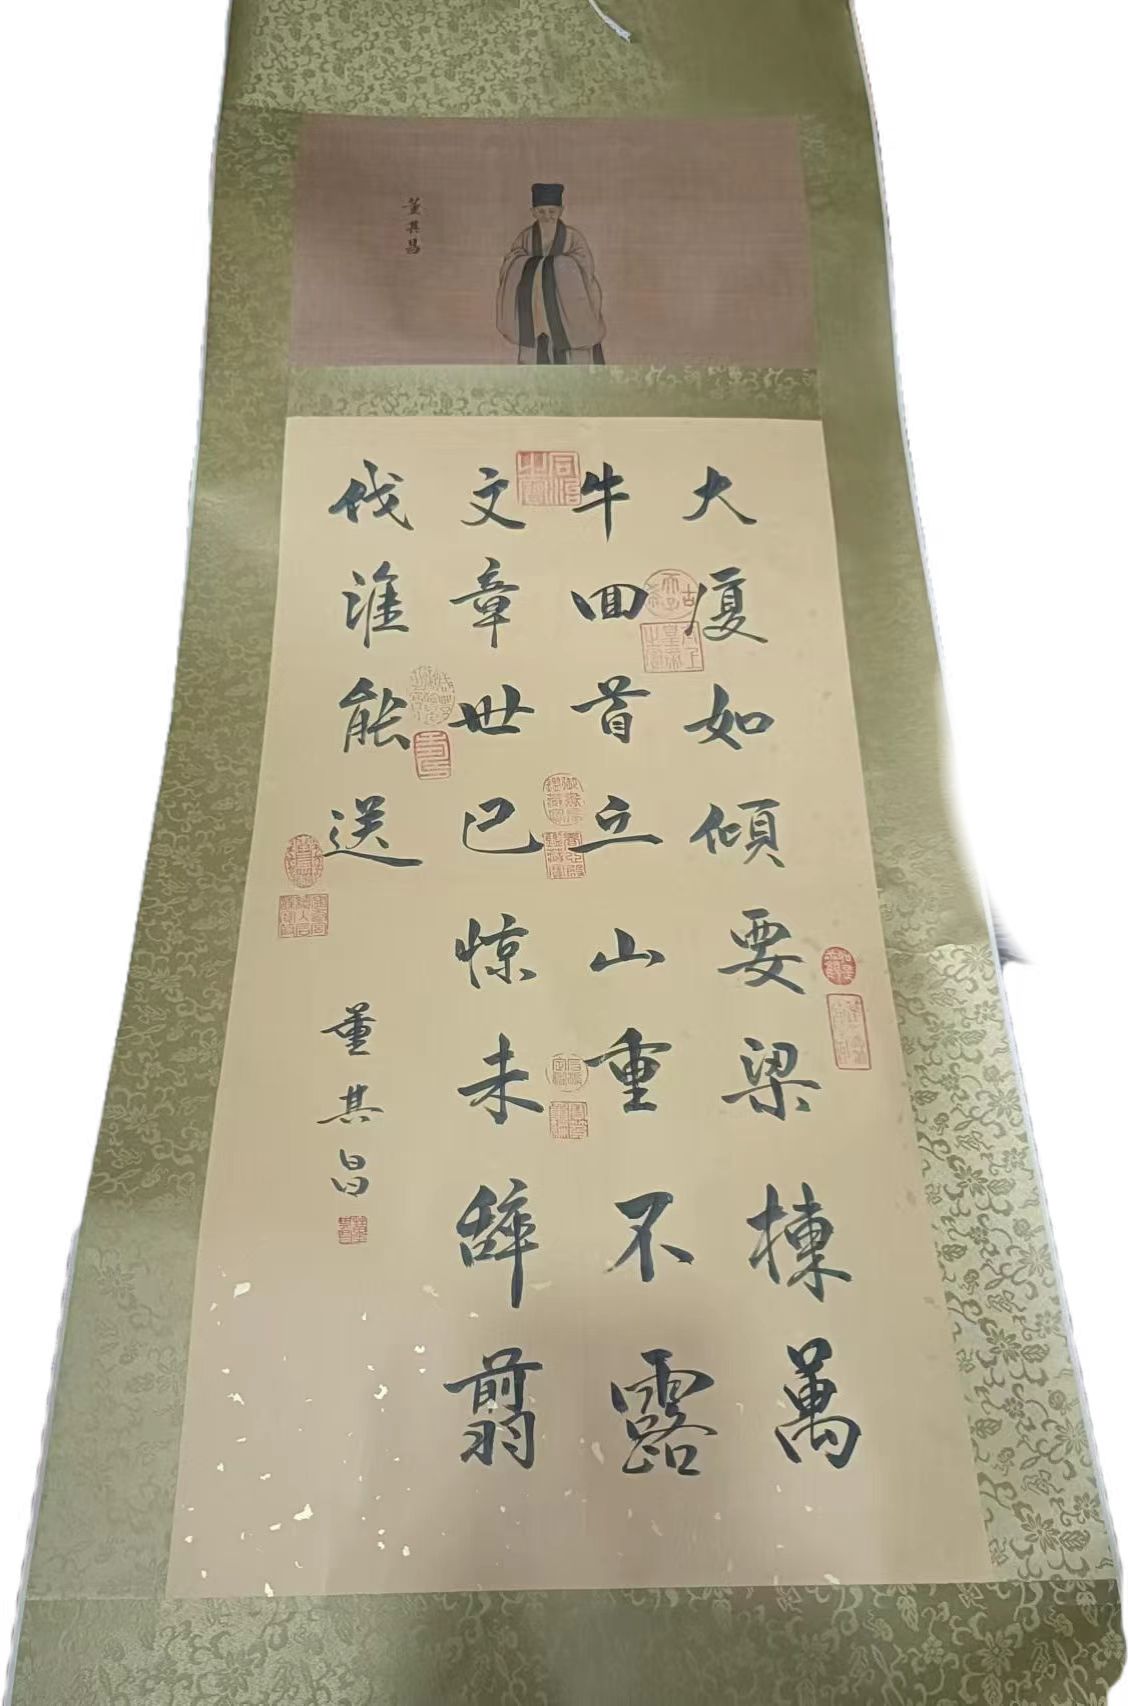 董其昌
大厦如傾要梁棟萬
牛回首丘山重不露
文章世已惊未辞翦
伐谁能送
董其昌
古希天子